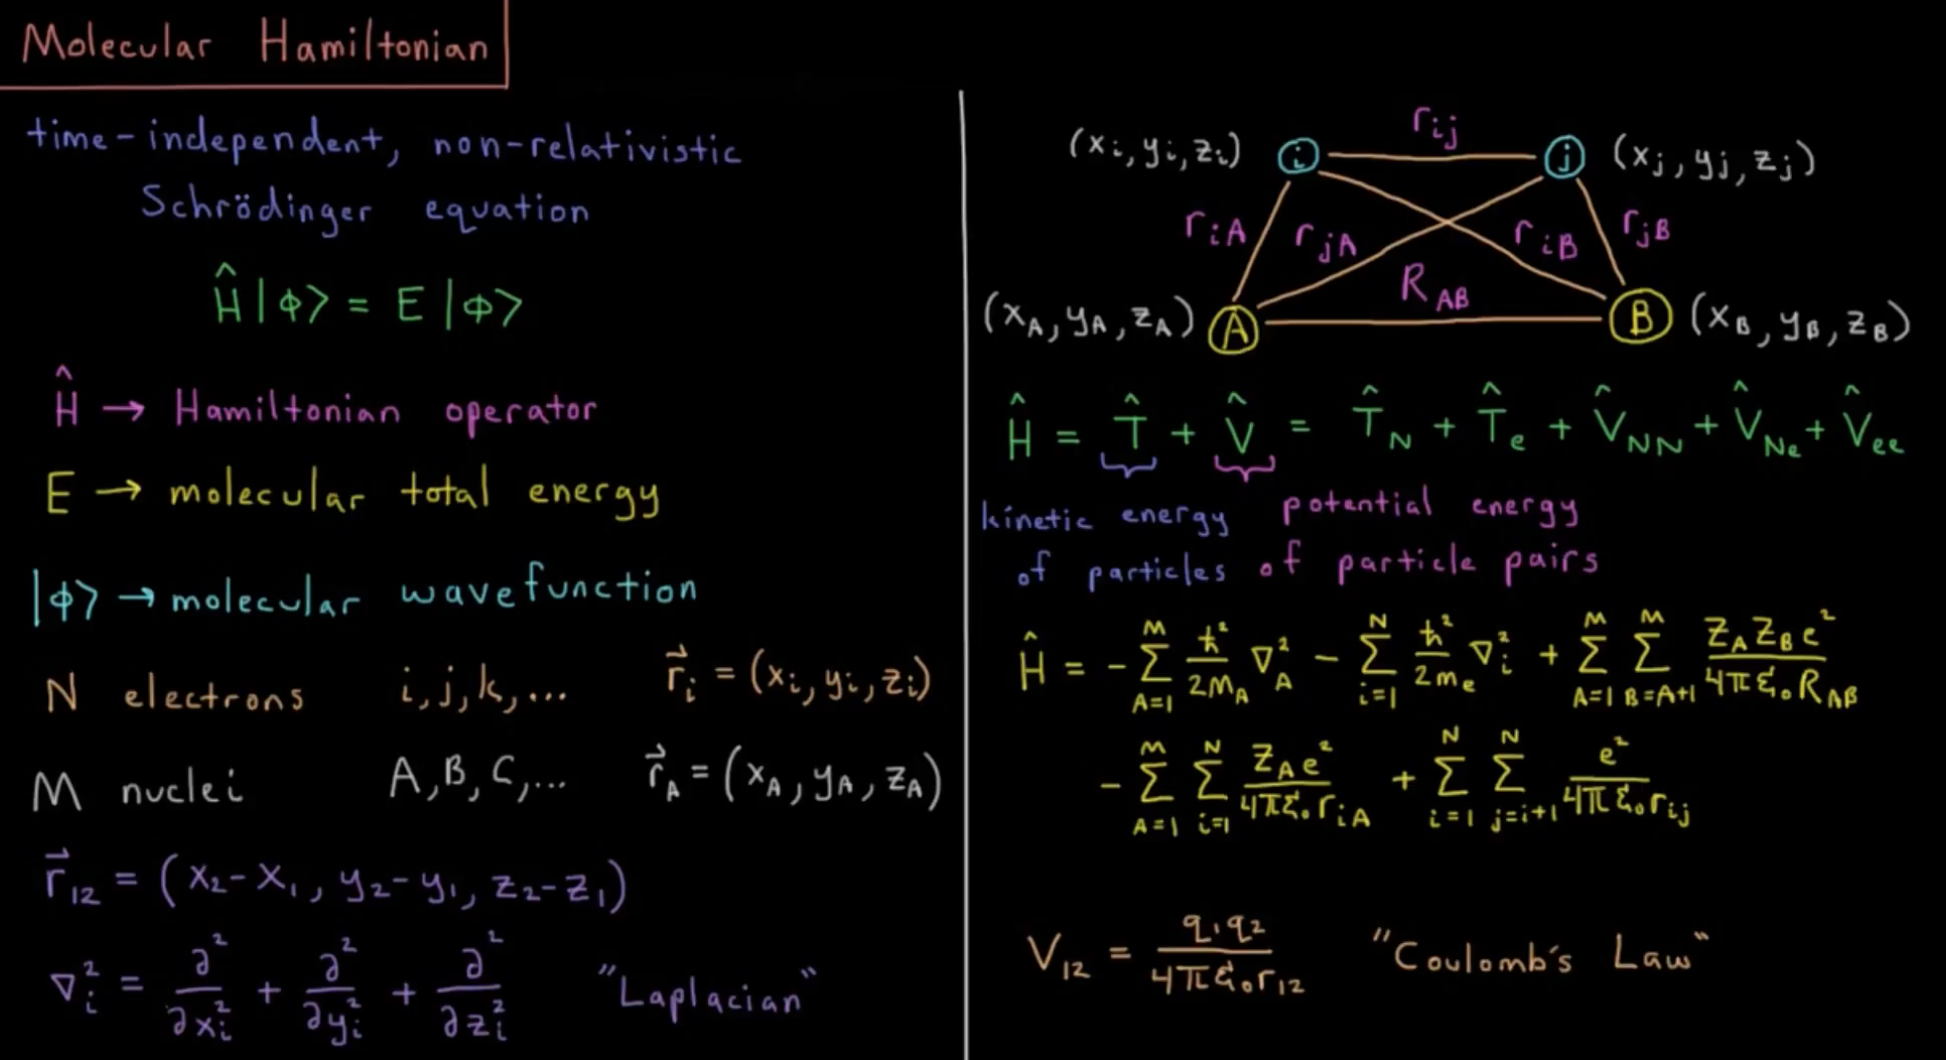 Molecular Hamiltonian
time-independent, non-relativistic
Schrödinger equation
Ĥ|ϕ⟩ = E|ϕ⟩
Ĥ → Hamiltonian operator
E → molecular total energy
|ϕ⟩ → molecular wavefunction
N electrons i, j, k, ... r⃗ᵢ = (xᵢ, yᵢ, zᵢ)
M nuclei A, B, C, ... r⃗_A = (x_A, y_A, z_A)
r⃗₁₂ = (x₂-x₁, y₂-y₁, z₂-z₁)
∇ᵢ² = ∂²/∂xᵢ² + ∂²/∂yᵢ² + ∂²/∂zᵢ² "Laplacian"
r_ij
(xᵢ, yᵢ, zᵢ) i j (x_j, y_j, z_j)
r_iA r_jA r_iB r_jB
R_AB
(x_A, y_A, z_A) A B (x_B, y_B, z_B)
Ĥ = T̂ + V̂ = T̂_N + T̂_e + V̂_NN + V̂_Ne + V̂_ee
kinetic energy potential energy
of particles of particle pairs
Ĥ = - Σ_{A=1}^{M} ħ²/2M_A ∇_A² - Σ_{i=1}^{N} ħ²/2m_e ∇ᵢ² + Σ_{A=1}^{M} Σ_{B=A+1}^{M} Z_A Z_B e²/4πε₀R_AB
- Σ_{A=1}^{M} Σ_{i=1}^{N} Z_A e²/4πε₀r_iA + Σ_{i=1}^{N} Σ_{j=i+1}^{N} e²/4πε₀r_ij
V₁₂ = q₁q₂/4πε₀r₁₂ "Coulomb's Law"